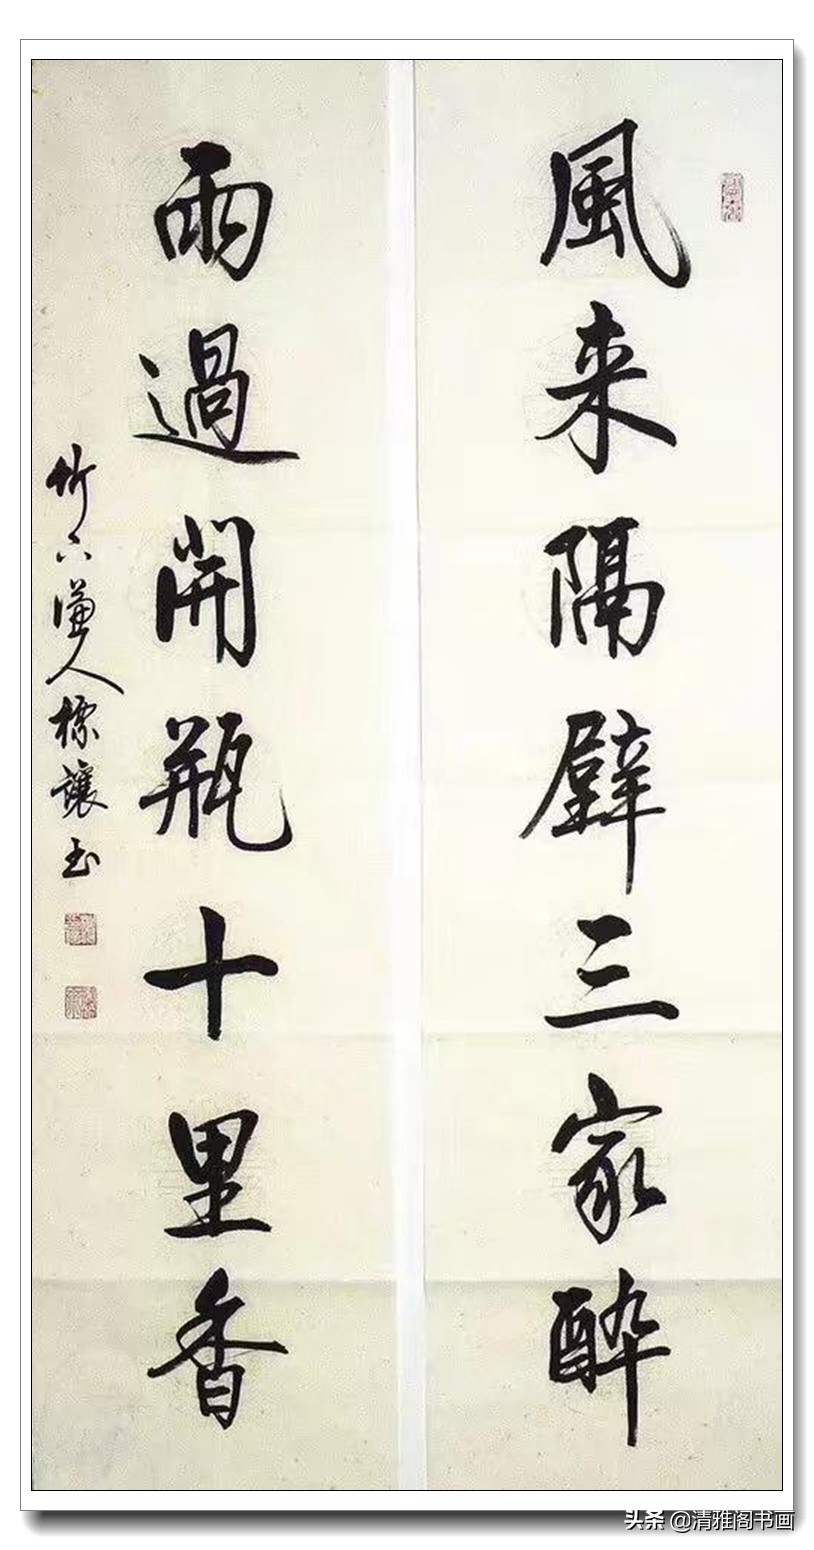 風来隔壁三家醉
雨過開瓶十里香
竹下謙人標讓书
头条 @清雅阁书画